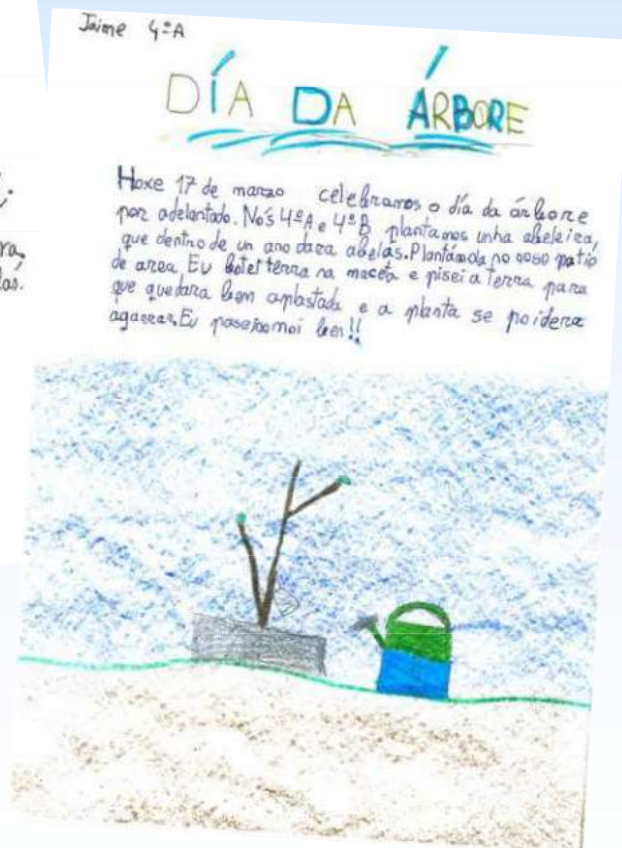 Jaime 4ºA
DÍA DA ÁRBORE
Hoxe 17 de marzo celebramos o día da árbore
por adelantado. Nós 4ºA e 4ºB plantamos unha abeleira,
que dentro de un ano dara abelás. Plantámola no noso patio
de area. Eu botei terra na maceta e pisei a terra para
que quedara ben aplastada e a planta se poidera
agarrar. Eu paseino moi ben!!